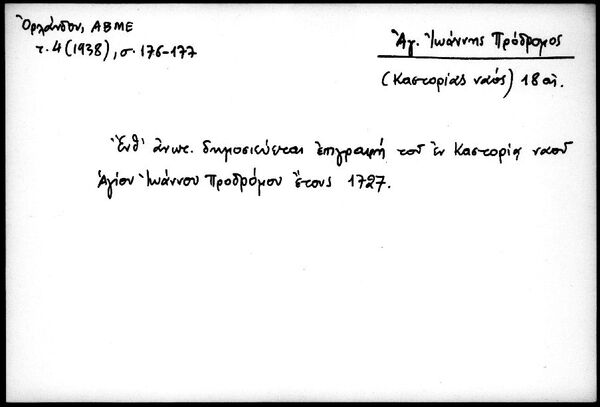 Ὀρλάνδου, ΑΒΜΕ
τ. 4 (1938), σ. 176-177
Ἁγ. Ἰωάννης Πρόδρομος
(Καστορίας ναός) 18 αἰ.
Ἔνθ' ἀνωτ. δημοσιεύεται ἐπιγραφή τοῦ ἐν Καστορίᾳ ναοῦ
Ἁγίου Ἰωάννου Προδρόμου ἔτους 1727.